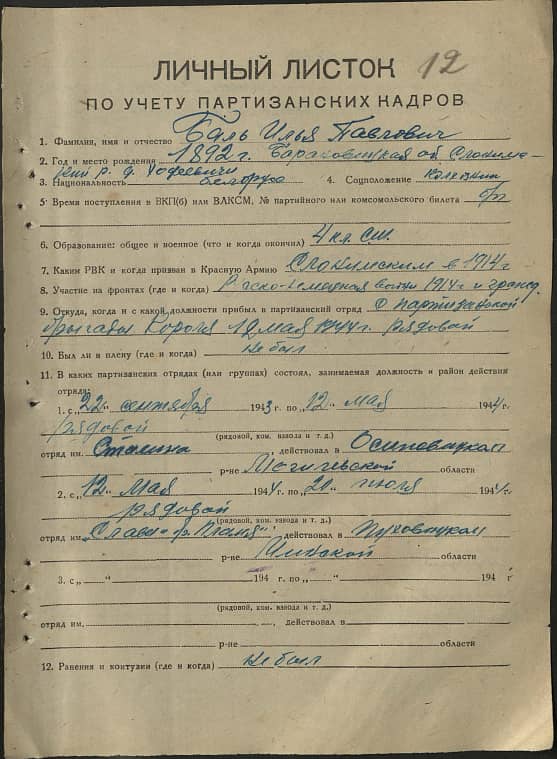 ЛИЧНЫЙ ЛИСТОК 12
ПО УЧЕТУ ПАРТИЗАНСКИХ КАДРОВ
1. Фамилия, имя и отчество Баль Илья Павлович
2. Год и место рождения 1892 г. Барановицкая об Слоним-
ский р. д.
3. Национальность белорус 4. Соцположение
5. Время поступления в ВКП(б) или ВЛКСМ, № партийного или комсомольского билета б/п
6. Образование: общее и военное (что и когда окончил) 4 кл.
7. Каким РВК и когда призван в Красную Армию Слонимским в 1914 г
8. Участие на фронтах (где и когда) 1914 г и гражд.
9. Откуда, когда и с какой должности прибыл в партизанский отряд С партизанской
бригады Короля 12 мая 1944 г. рядовой
10. Был ли в плену (где и когда) не был
11. В каких партизанских отрядах (или группах) состоял, занимаемая должность и район действия
отряда:
1. с „22“ сентября 1943 г. по „12“ мая 1944 г.
рядовой
(рядовой, ком. взвода и т. д.)
отряд им. Сталина, действовал в Осиповицком
р-не Могилевской области
2. с „12“ мая 1944 г. по „20“ июля 1944 г.
рядовой
(рядовой, ком. взвода и т. д.)
отряд им. „Слава“ бр. Пламя, действовал в Пуховицком
р-не Минской области
3. с „ “ 194 г. по „ “ 194 г
(рядовой, ком. взвода и т. д.)
отряд им. , действовал в
р-не области
12. Ранения и контузии (где и когда) не был